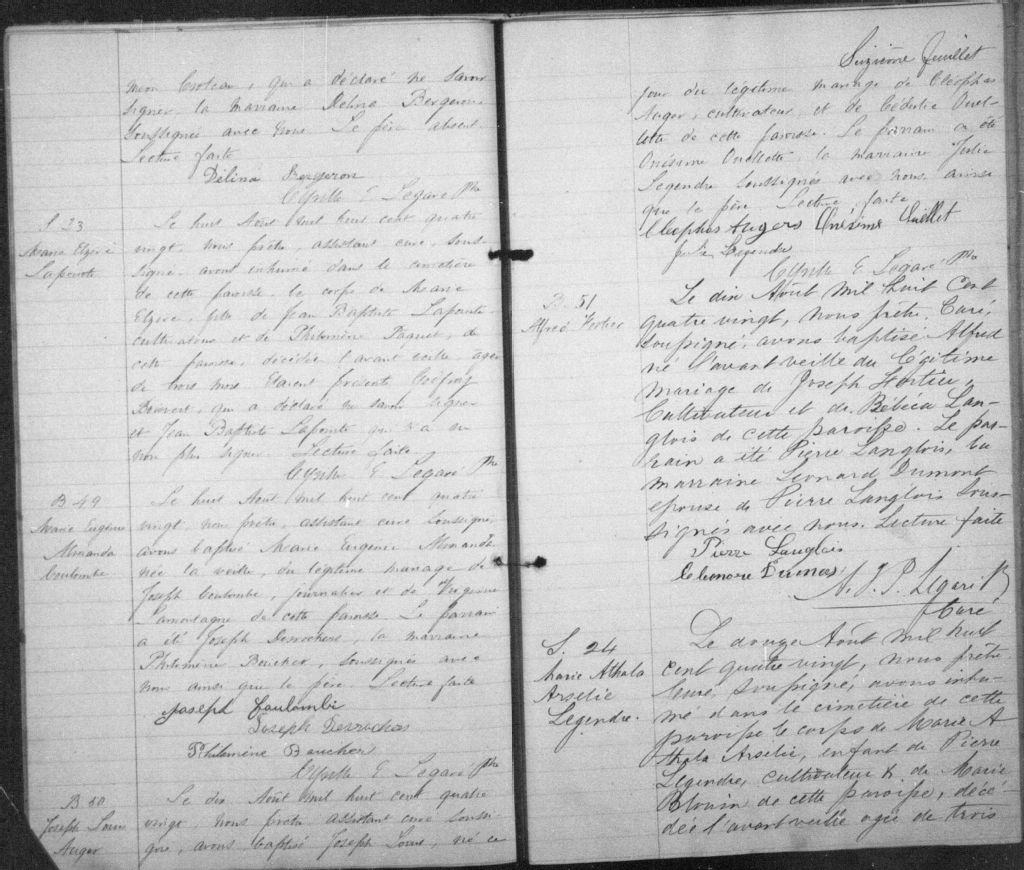 mon Croteau, qui a déclaré ne savoir
signer la marraine Délina Bergeron
soussignée avec nous. Le père absent.
Lecture faite
Délina Bergeron
Cyrille E Legaré Ptre
S 23
Marie Elzire
Lapointe
Le huit Août mil huit cent quatre
vingt, nous prêtre, assistant curé, sous-
signé avons inhumé dans le cimetière
de cette paroisse le corps de Marie
Elzire, fille de Jean Baptiste Lapointe
cultivateur et de Philomène Paquet, de
cette paroisse, décédée l'avant veille, agée
de trois mois. Etaient présents
qui a déclaré ne savoir signer
et Jean Baptiste Lapointe qui n'a su
non plus signer. Lecture faite.
Cyrille E Legaré Ptre
B 49
Marie Eugénie
Alminda
Coulombe
Le huit Août mil huit cent quatre
vingt, nous prêtre, assistant curé soussigné,
avons baptisé Marie Eugenie Alminda
née la veille, du légitime mariage de
Joseph Coulombe, journalier et de Virginie
Lamontagne de cette paroisse. Le parrain
a été Joseph Desrochers, la marraine
Philomène Boucher, soussignés avec
nous ainsi que le père. Lecture faite
Joseph Coulombe
Joseph Desrochers
Philomine Boucher
Cyrille E Legaré Ptre
B 50
Joseph Louis
Auger
Le dix Août mil huit cent quatre
vingt, nous prêtre assistant curé soussi
gné, avons baptisé Joseph Louis, né ce
feuillet
jour du légitime mariage de Cléophas
Auger, cultivateur et de Cédulie Ouel-
lette de cette paroisse. Le parrain a été
Onésime Ouellette, la marraine Julie
Legendre soussignés avec nous ainsi
que le père. Lecture faite
Cléophas Augers Onésime Ouellet
Julie Legendre
Cyrille E Legaré Ptre
B. 51
Alfred Fortier
Le dix Août mil huit cent
quatre vingt, nous prêtre, Curé,
soussigné, avons baptisé Alfred
né l'avant veille du légitime
mariage de Joseph Fortier,
Cultivateur et de Rébéca Lan-
glois de cette paroisse. Le par-
rain a été Pierre Langlois, la
marraine Léonard Dumont
épouse de Pierre Langlois sous-
signés avec nous. Lecture faite
Pierre Langlois
Eleonore Dumas
N. J. P. Légaré Ptre
Curé
S. 24
Marie Athala
Arselie
Legendre.
Le douze Août mil huit
cent quatre vingt, nous prêtre
Curé, soussigné, avons inhu-
mé dans le cimetière de cette
paroisse le corps de Marie A
thala Arselie, enfant de Pierre
Légendre, cultivateur & de Marie
Blouin de cette paroisse, décé-
dée l'avant veille agée de trois